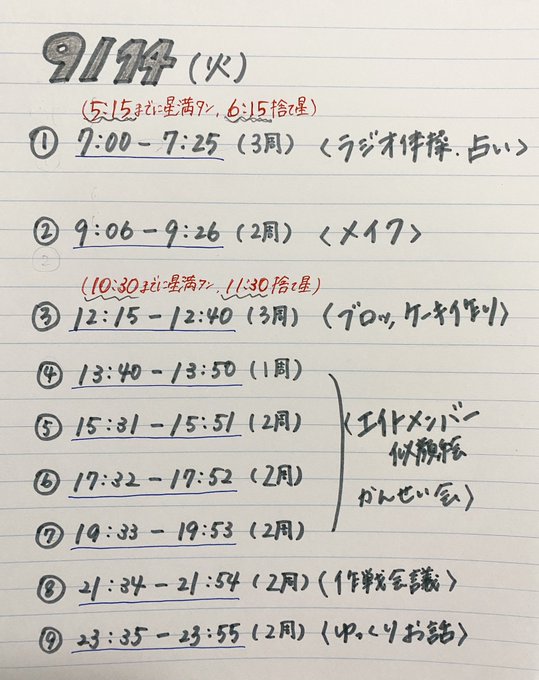 9/14(火)
(5:15までに星満タン、6:15捨て星)
① 7:00-7:25 (3周) <ラジオ体操、占い>
② 9:06-9:26 (2周) <メイク>
(10:30までに星満タン、11:30捨て星)
③ 12:15-12:40 (3周) <ブロッ、ケーキ作り>
④ 13:40-13:50 (1周)
⑤ 15:31-15:51 (2周) <エイトメンバー
似顔絵
⑥ 17:32-17:52 (2周)
かんせい会>
⑦ 19:33-19:53 (2周)
⑧ 21:34-21:54 (2周) <作戦会議>
⑨ 23:35-23:55 (2周) <ゆっくりお話>